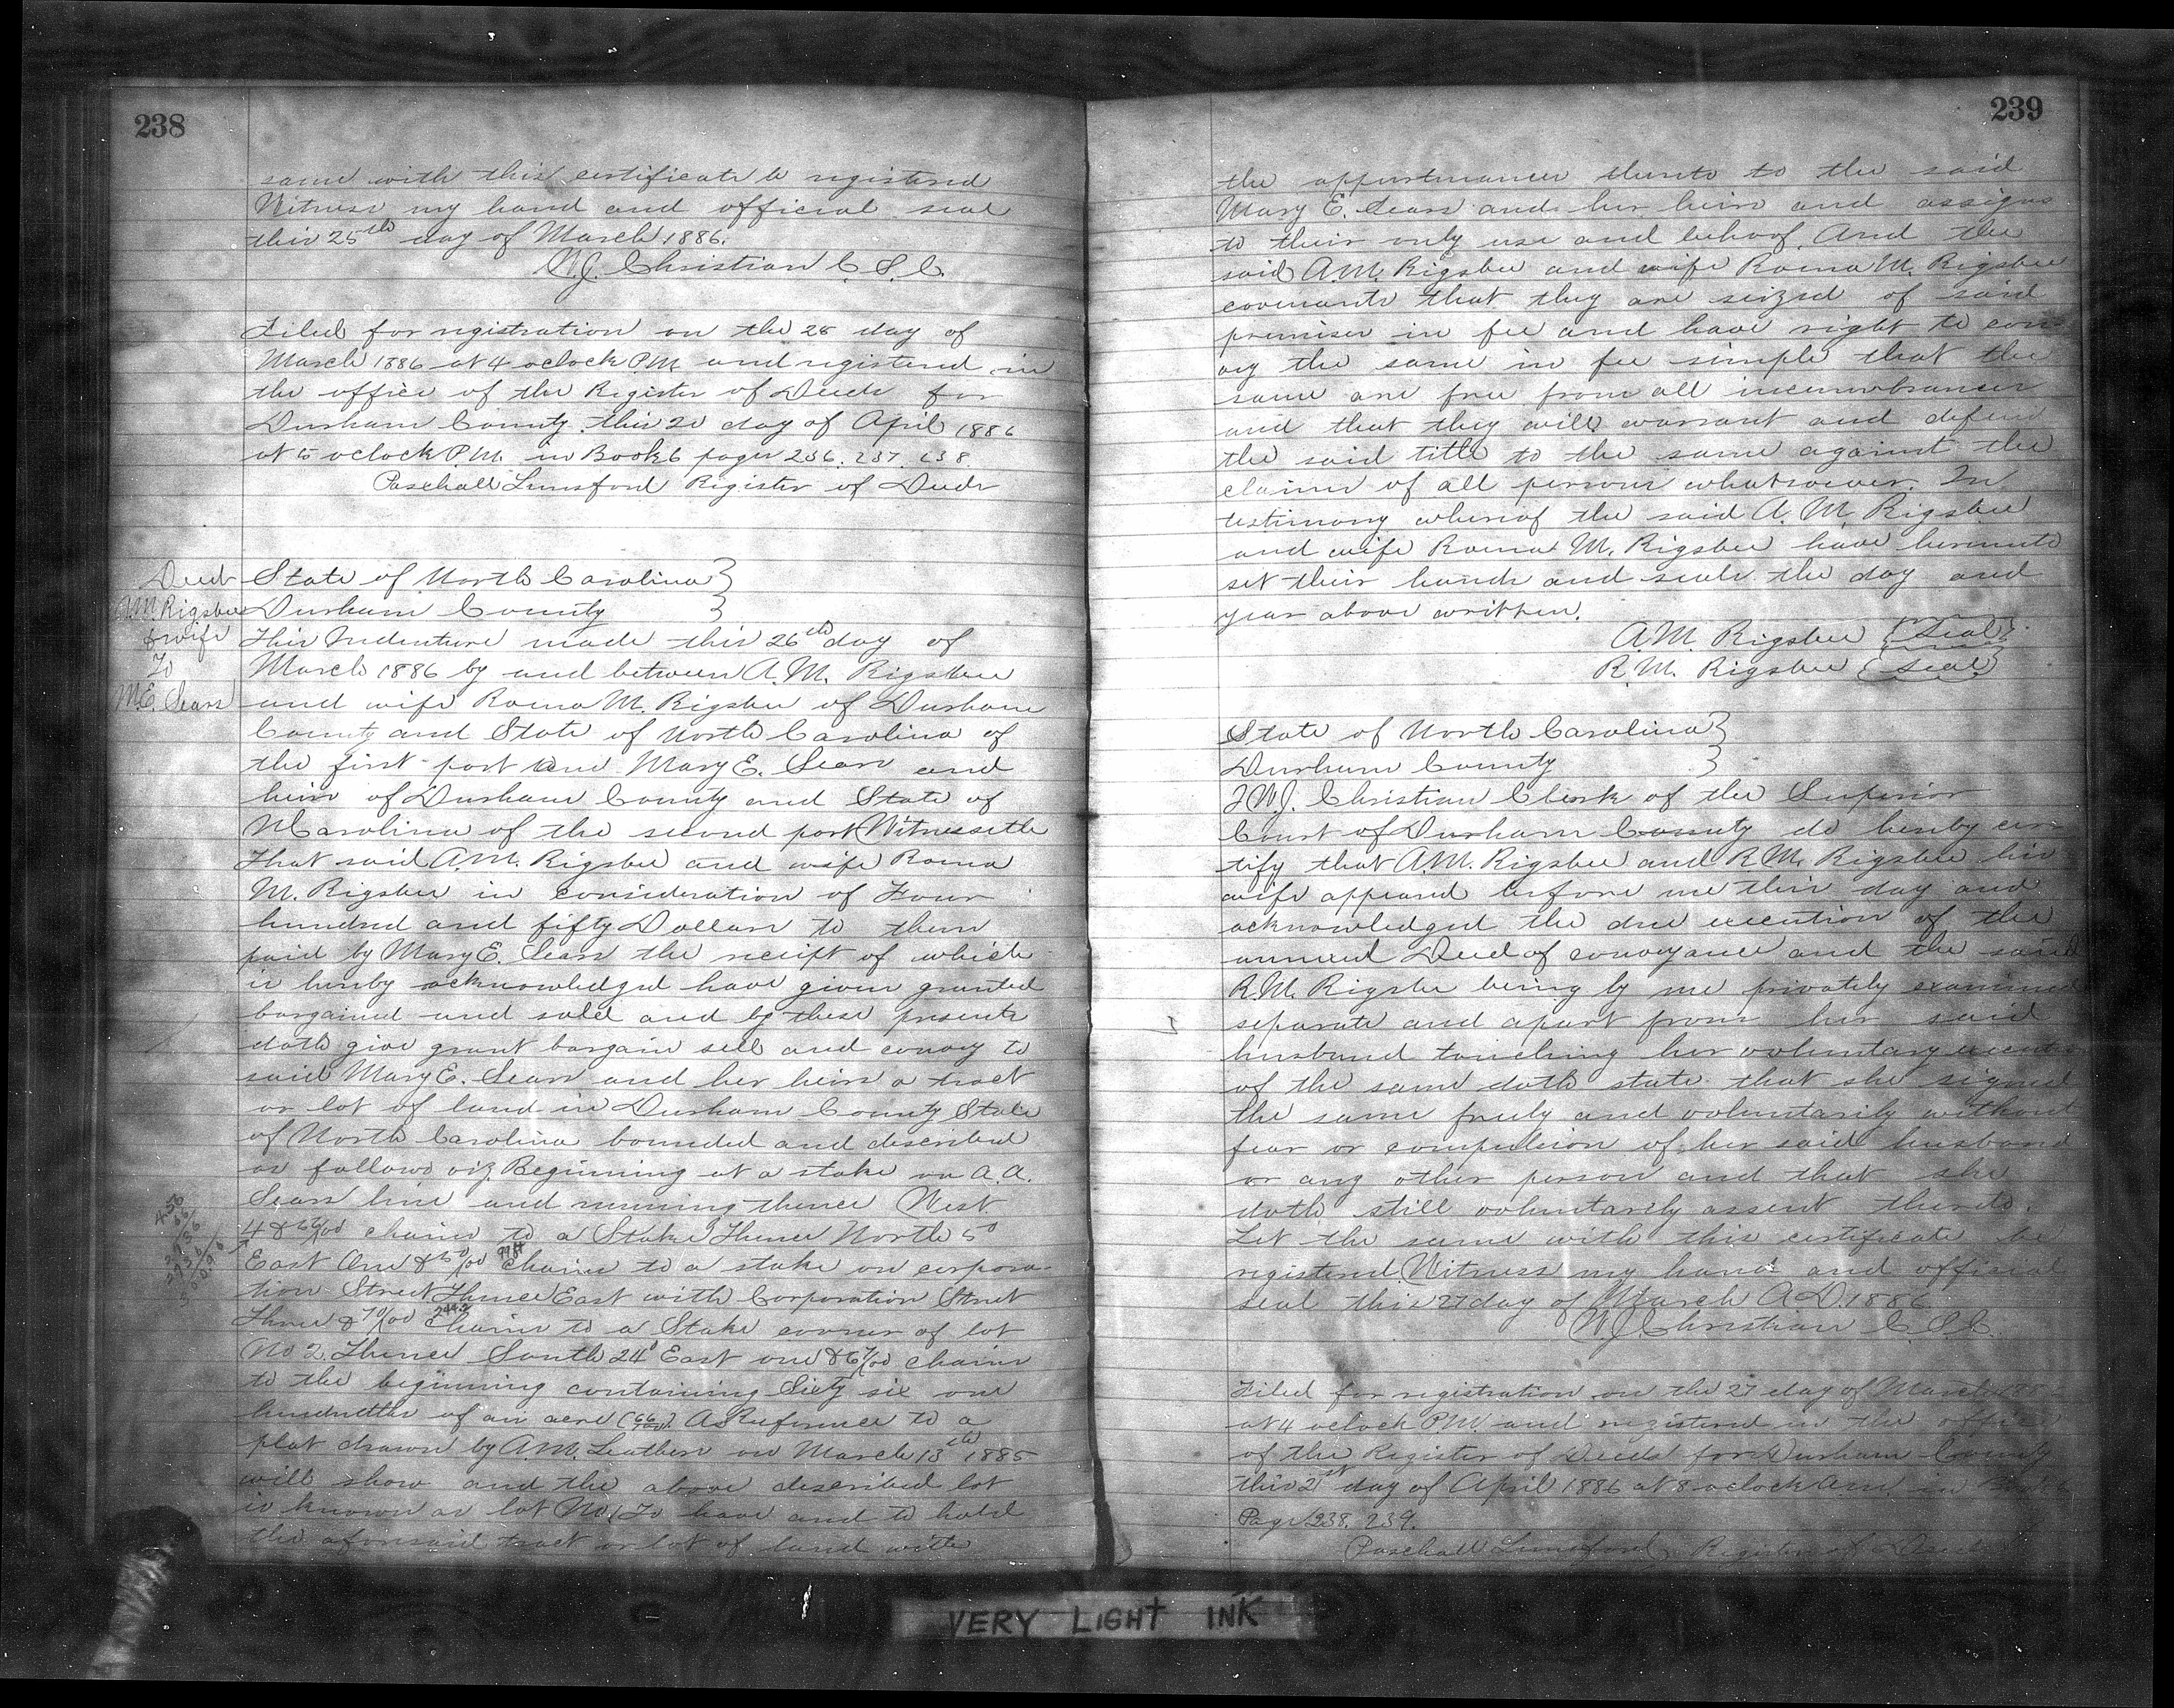 238
same with this certificate be registered
Witness my hand and official seal
this 25th day of March 1886.
W.J. Christian C.S.C.
Filed for registration on the 25 day of
March 1886 at 4 oclock PM and registered in
the office of the Register of Deeds for
Durham County this 20 day of April 1886
at 5 oclock P.M. in Book 6 pages 236. 237. 238
Paschall Lunsford Register of Deeds
Deed
A.M. Rigsbee
& wife
To
M.E. Sears
State of North Carolina }
Durham County }
This Indenture made this 26th day of
March 1886 by and between A.M. Rigsbee
and wife Roma M. Rigsbee of Durham
County and State of North Carolina of
the first part and Mary E. Sears and
heirs of Durham County and State of
N Carolina of the second part Witnesseth
That said A.M. Rigsbee and wife Roma
M. Rigsbee in consideration of Four
hundred and fifty Dollars to them
paid by Mary E. Sears the receipt of which
is hereby acknowledged have given granted
bargained and sold and by these presents
doth give grant bargain sell and convey to
said Mary E. Sears and her heirs a tract
or lot of land in Durham County State
of North Carolina bounded and described
as follows viz. Beginning at a stake on A.A.
Sears line and running thence West
4 & 56/100 chains to a Stake Thence North 5°
East One & 50/100 chains to a stake on corpora-
tion Street Thence East with Corporation Street
Three & 70/100 chains to a Stake corner of lot
No 2. Thence South 24° East one & 67/100 chains
to the beginning containing Sixty six one
hundredths of an acre (66/100) As Reference to a
plat drawn by A.M. Leathers on March 13th 1885
will show and the above described lot
is known as lot No 1 To have and to hold
the aforesaid tract or lot of land with
239
the appurtenances thereto to the said
Mary E. Sears and her heirs and assigns
to their only use and behoof. And the
said A.M. Rigsbee and wife Roma M. Rigsbee
covenants that they are seized of said
premises in fee and have right to conv
ey the same in fee simple that the
same are free from all incumbrances
and that they will warrant and defend
the said title to the same against the
claims of all persons whatsoever. In
testimony whereof the said A.M. Rigsbee
and wife Roma M. Rigsbee have hereunto
set their hands and seals the day and
year above written.
A.M. Rigsbee {Seal}
R.M. Rigsbee {Seal}
State of North Carolina }
Durham County }
I W.J. Christian Clerk of the Superior
Court of Durham County do hereby cer
tify that A.M. Rigsbee and R.M. Rigsbee his
wife appeared before me this day and
acknowledged the due execution of the
annexed Deed of conveyance and the said
R.M. Rigsbee being by me privately examined
separate and apart from her said
husband touching her voluntary
of the same doth state that she signed
the same freely and voluntarily without
fear or compulsion of her said husband
or any other person and that she
doth still voluntarily assent thereto.
Let the same with this certificate be
registered. Witness my hand and official
seal this 27 day of March A.D. 1886
W.J. Christian C.S.C.
Filed for registration on the 27 day of March
at 4 oclock P.M. and registered in the office
of the Register of Deeds for Durham County
this 21st day of April 1886 at 8 oclock am. in
Page 238. 239.
Paschall Lunsford Register of Deeds
VERY LIGHT INK